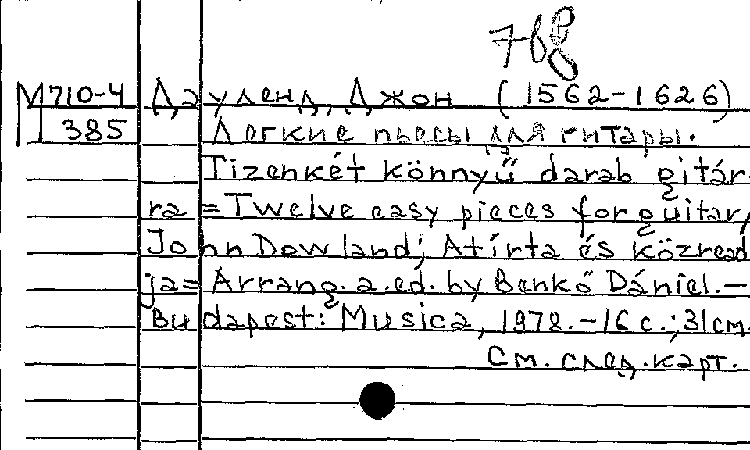 М710-4 Дауленд, Джон (1562-1626)
385 Легкие пьесы для гитары.
Tizenkét könnyű darab gitár-
ra = Twelve easy pieces for guitar/
John Dowland; Átírta és közread-
ja = Arrang. a. ed. by Benkő Dániel. –
Budapest: Musica, 1978. – 16 с.; 31 см.
См. след. карт.